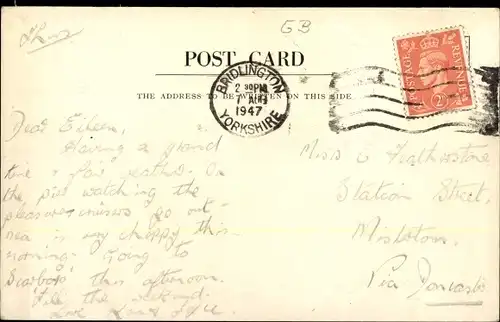 GB
POST CARD
THE ADDRESS TO BE WRITTEN ON THIS SIDE
BRIDLINGTON
2 30PM
7 AUG
1947
YORKSHIRE
POSTAGE
REVENUE
2D
Dear Eileen,
Having a grand
time & "fair" weather. On
the pier watching the
pleasure cruisers go out -
sea is very choppy this
morning. Going to
Scarboro' this afternoon.
the weekend.
Love
Miss E Featherstone
Station Street,
Misterton,
Via Doncaster